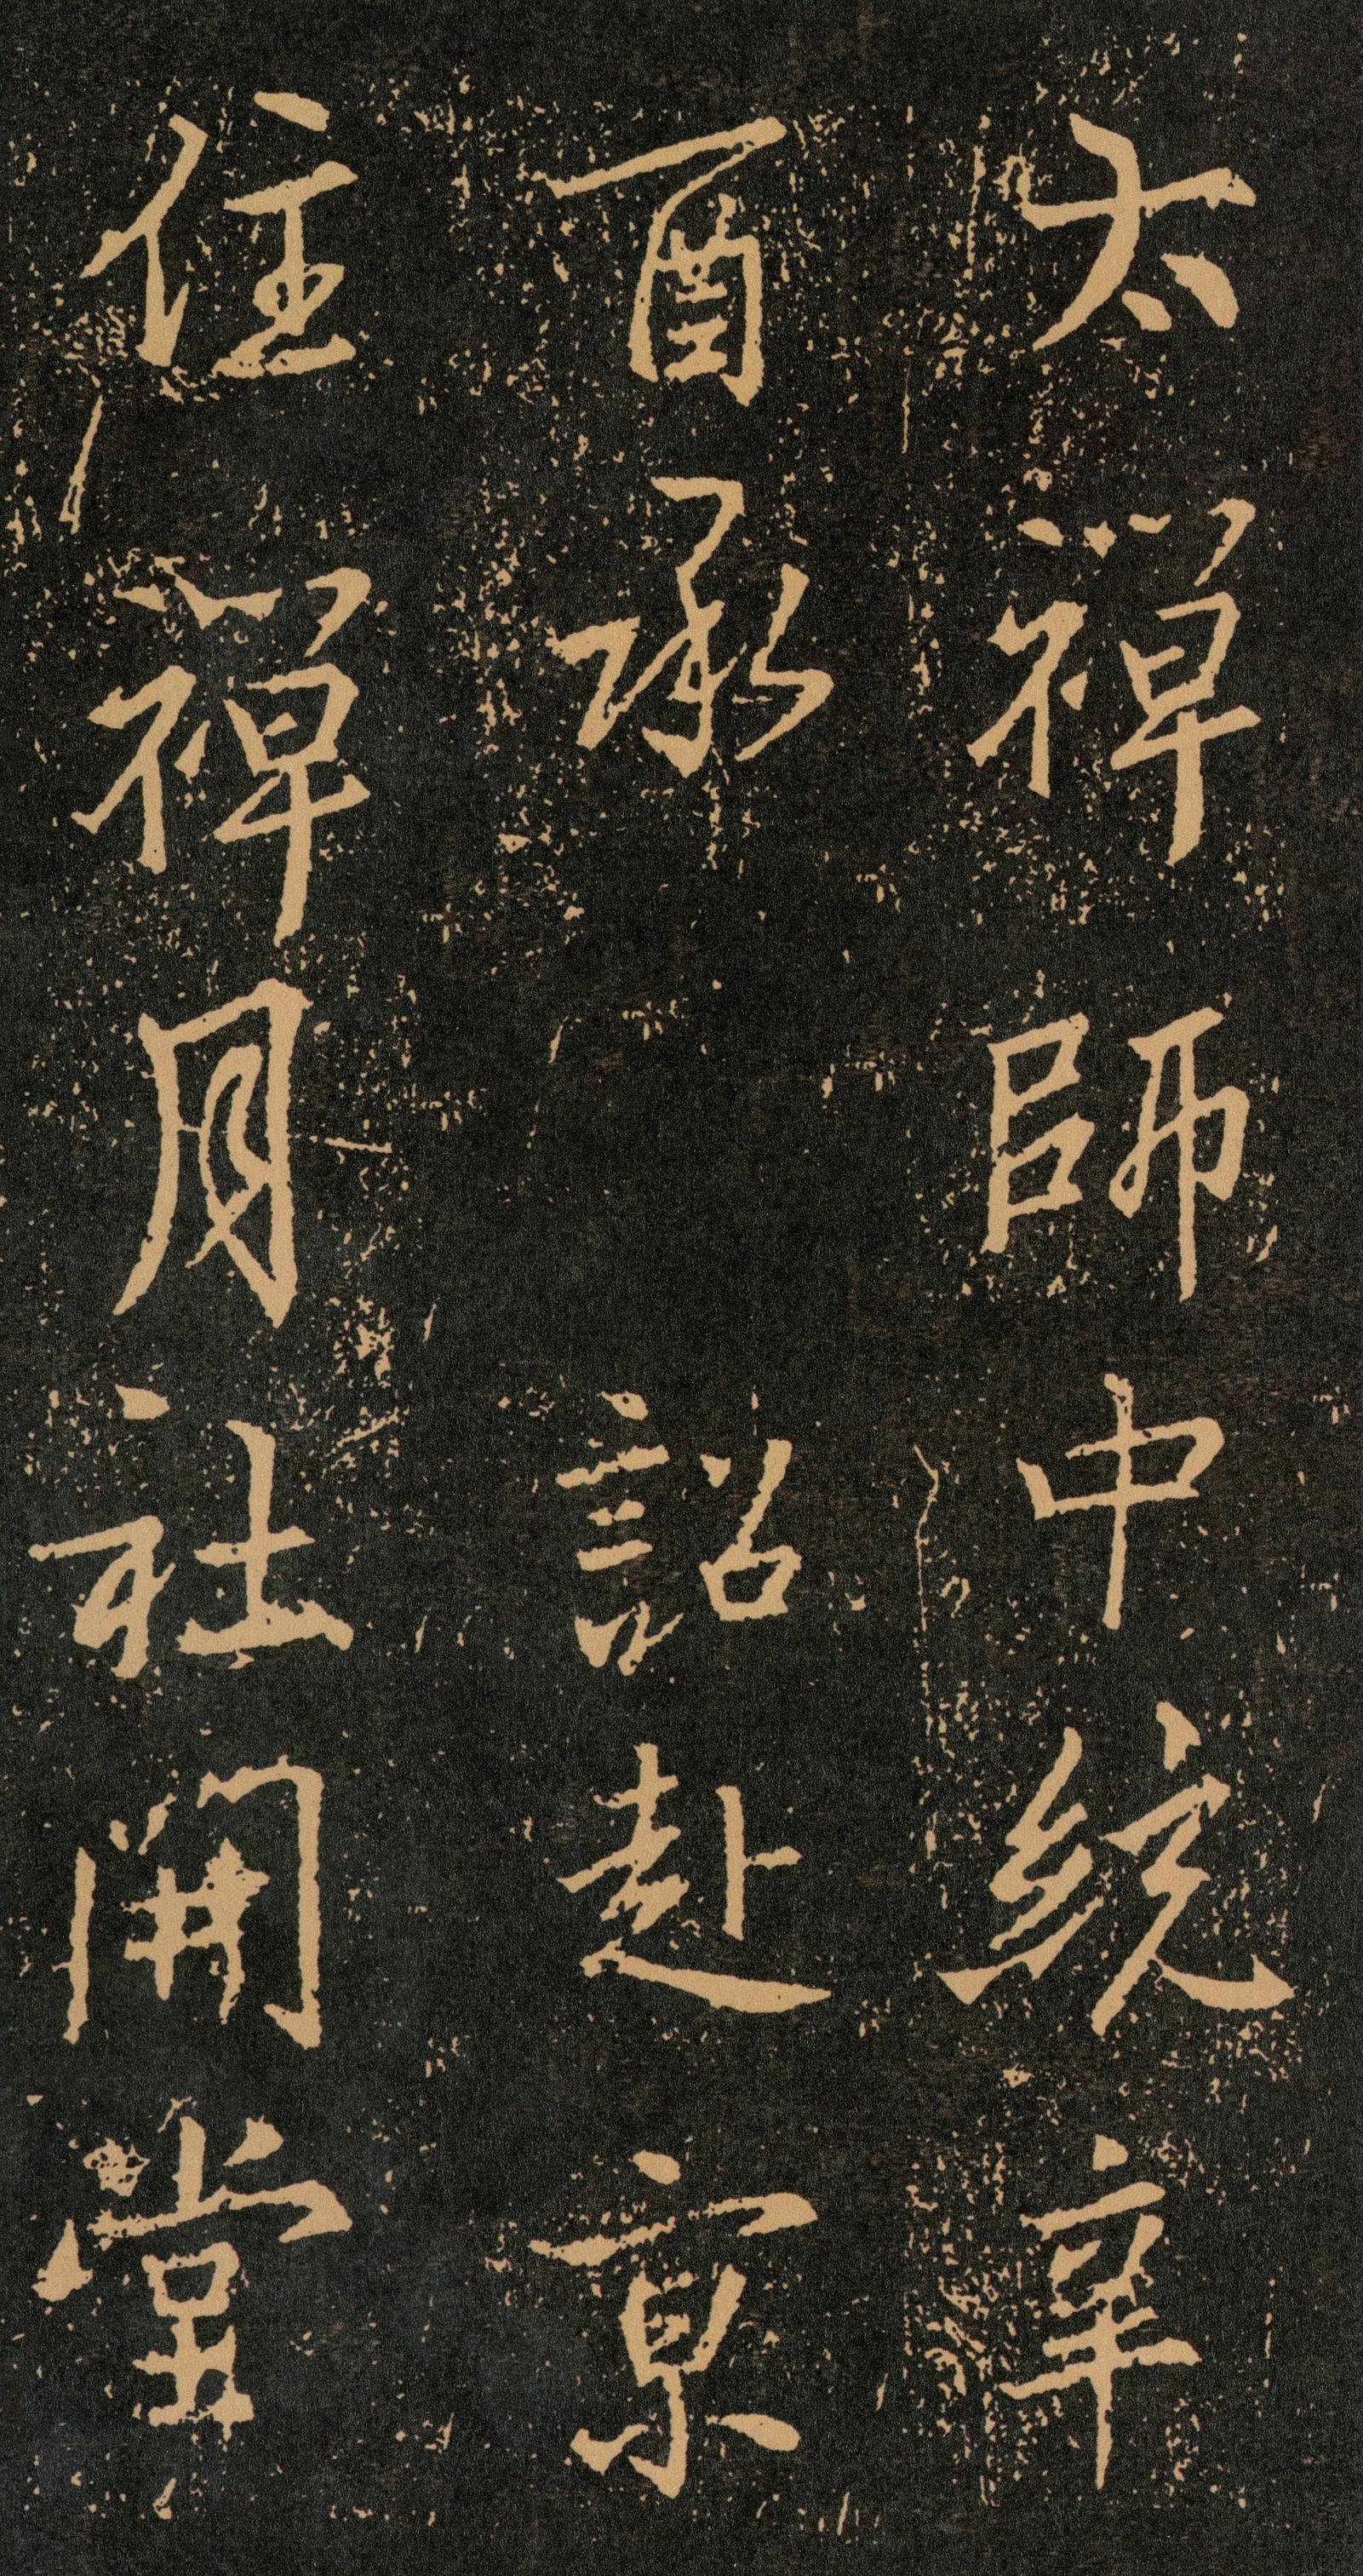 太禪師中統辛
酉承詔赴京
住禪月社開堂